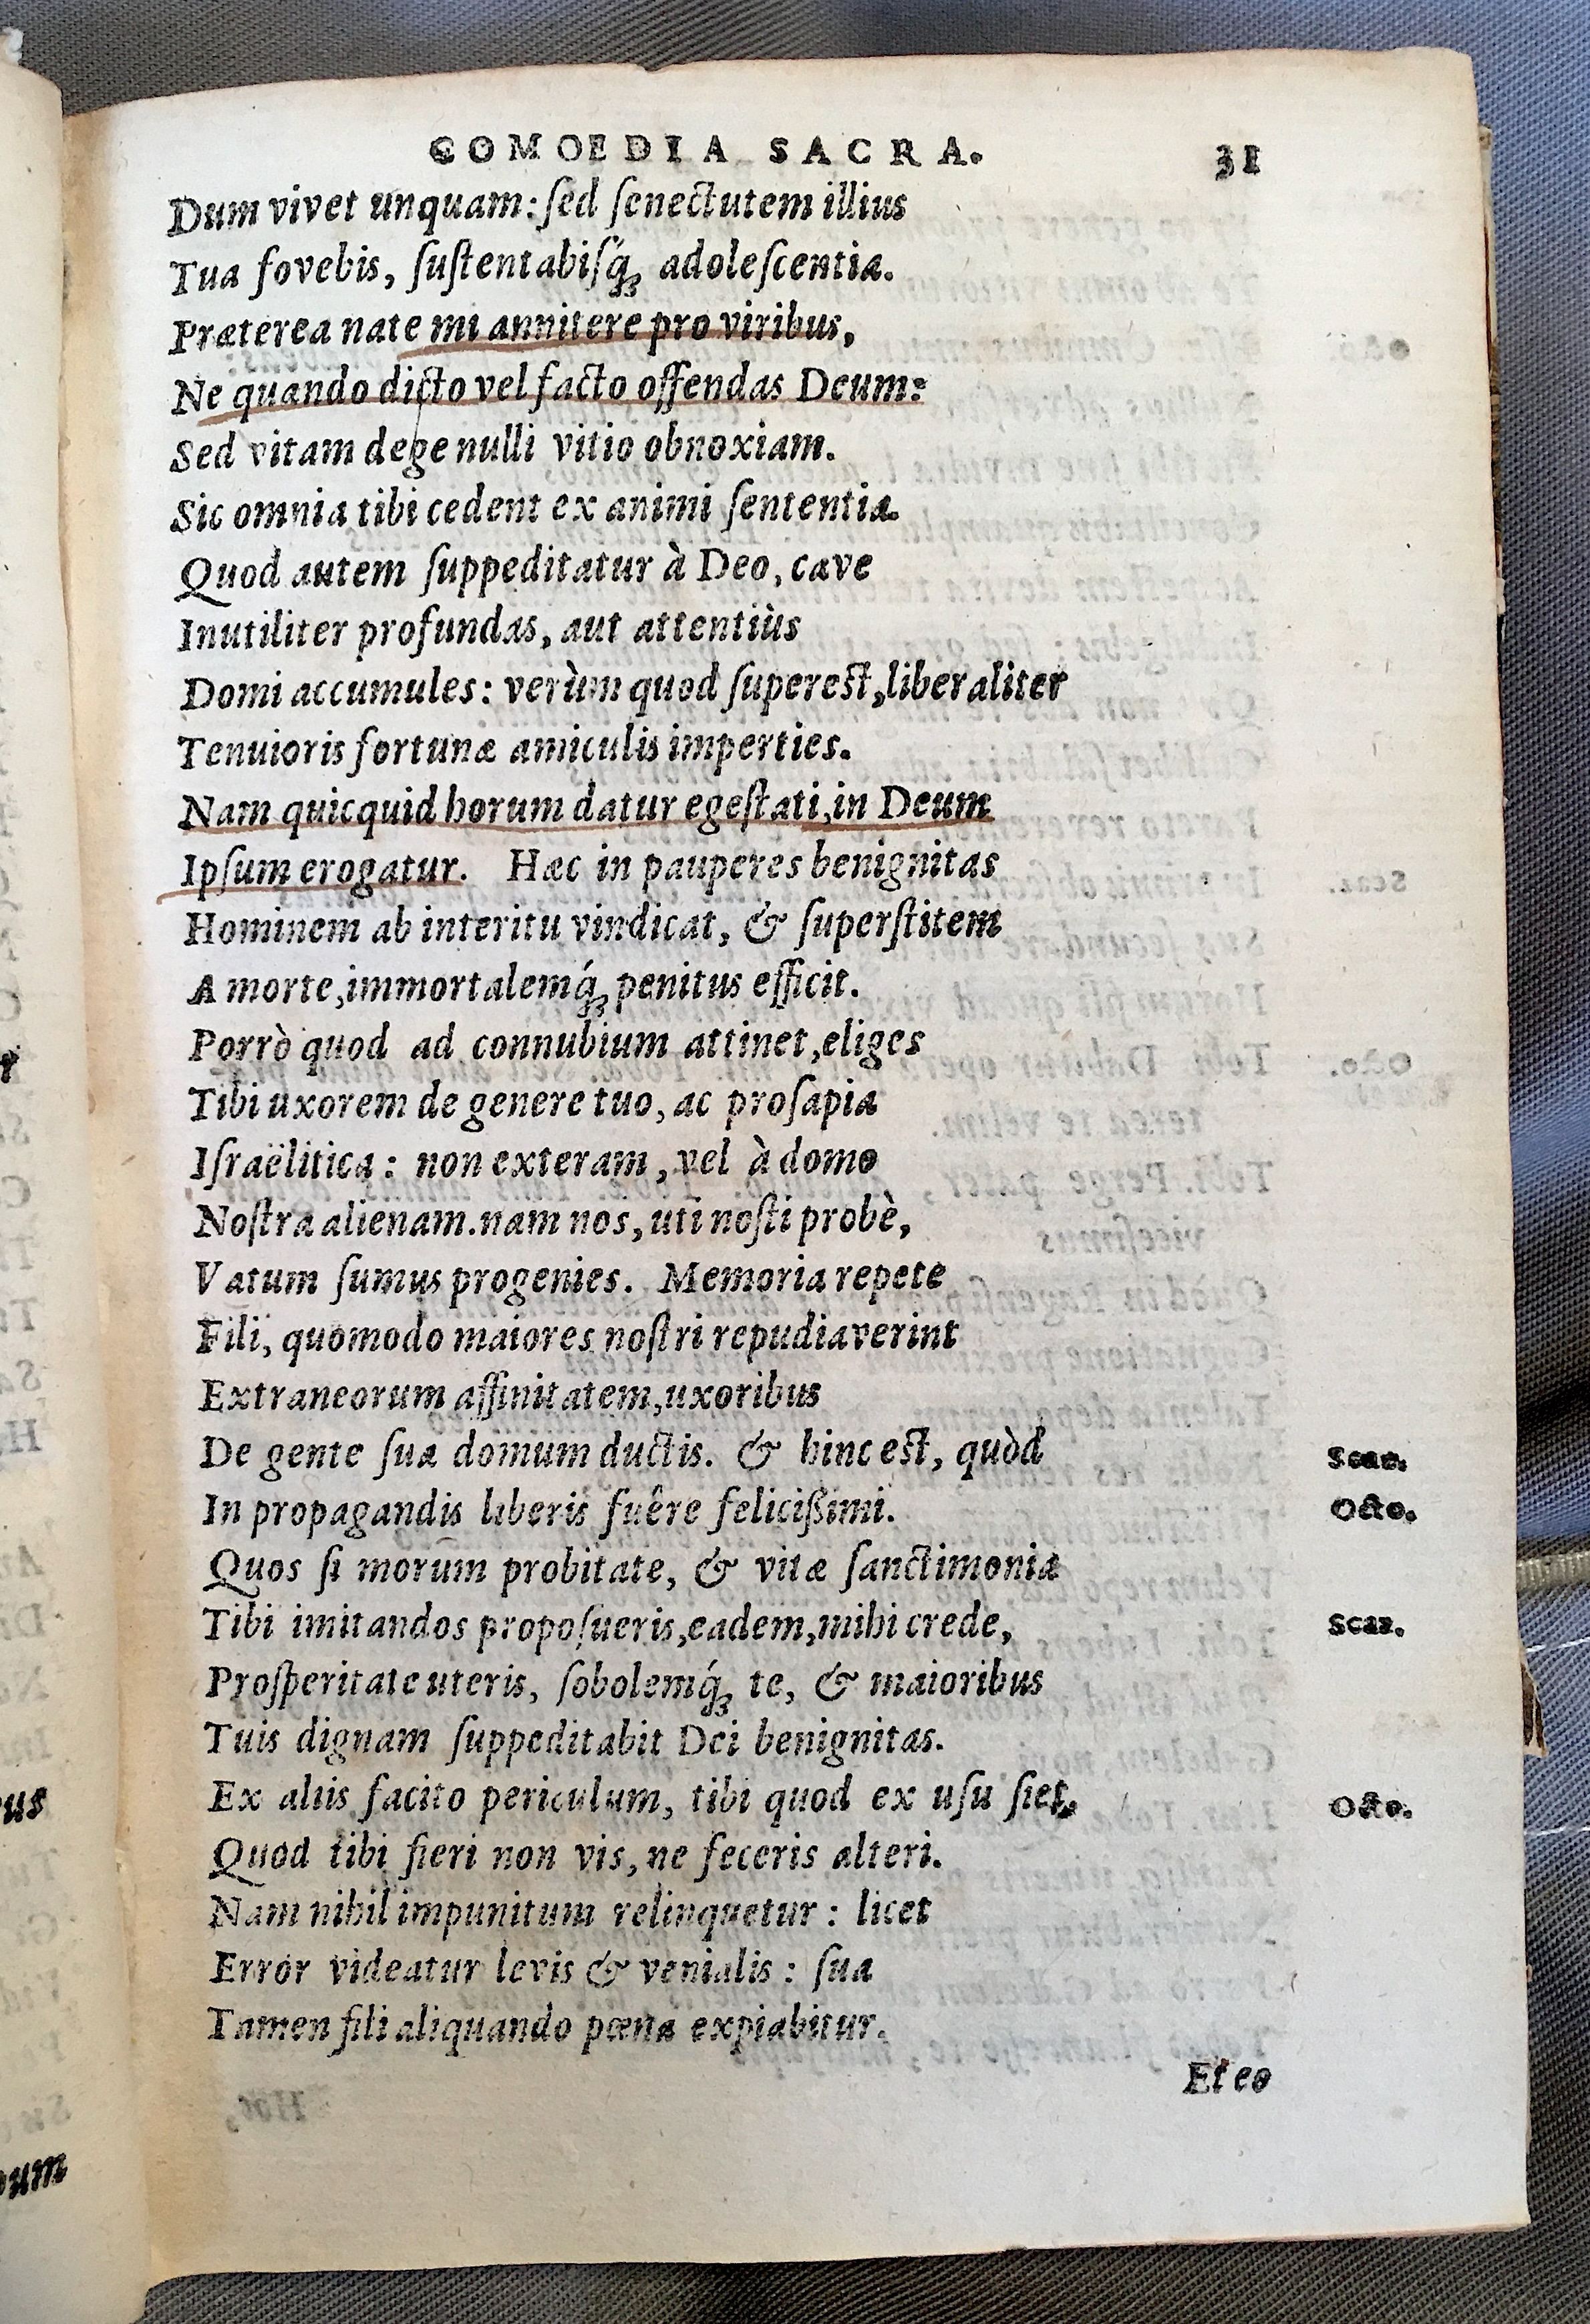 COMOEDIA SACRA. 31
Dum vivet unquam: ſed ſenectutem illius
Tua fovebis, ſuſtentabiſq́ꝫ adoleſcentia.
Præterea nate mi annitere pro viribus,
Ne quando dicto vel facto offendas Deum:
Sed vitam dege nulli vitio obnoxiam.
Sic omnia tibi cedent ex animi ſententia.
Quod autem ſuppeditatur à Deo, cave
Inutiliter profundas, aut attentiùs
Domi accumules: verùm quod ſupereſt, liberaliter
Tenuioris fortunæ amiculis imperties.
Nam quicquid horum datur egeſtati, in Deum
Ipſum erogatur. Hæc in pauperes benignitas
Hominem ab interitu vindicat, & ſuperſtitem
A morte, immortalemq́ꝫ penitus efficit.
Porrò quod ad connubium attinet, eliges
Tibi uxorem de genere tuo, ac proſapia
Iſraëlitica: non exteram, vel à domo
Noſtra alienam. nam nos, uti noſti probè,
Vatum ſumus progenies. Memoria repete
Fili, quomodo maiores noſtri repudiaverint
Extraneorum affinitatem, uxoribus
De gente ſua domum ductis. & hinc eſt, quòd Scaz.
In propagandis liberis fuêre feliciſſimi. Octo.
Quos ſi morum probitate, & vitæ ſanctimonia
Tibi imitandos propoſueris, eadem, mihi crede, Scaz.
Proſperitate uteris, ſobolemq́ꝫ te, & maioribus
Tuis dignam ſuppeditabit Dei benignitas.
Ex aliis facito periculum, tibi quod ex uſu ſiet. Octo.
Quod tibi fieri non vis, ne feceris alteri.
Nam nihil impunitum relinquetur: licet
Error videatur levis & venialis: ſua
Tamen fili aliquando pœna expiabitur.
Et eo